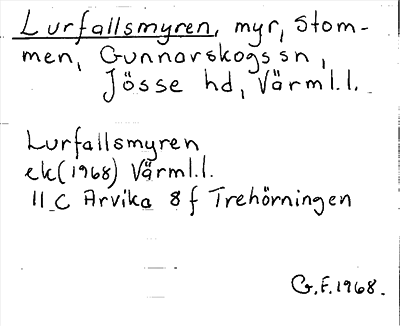 Lurfallsmyren, myr, Stom-
men, Gunnarskogs sn,
Jösse hd, Värml.l.
Lurfallsmyren
ek(1968) Värml.l.
11 C Arvika 8 f Trehörningen
G.F.1968.